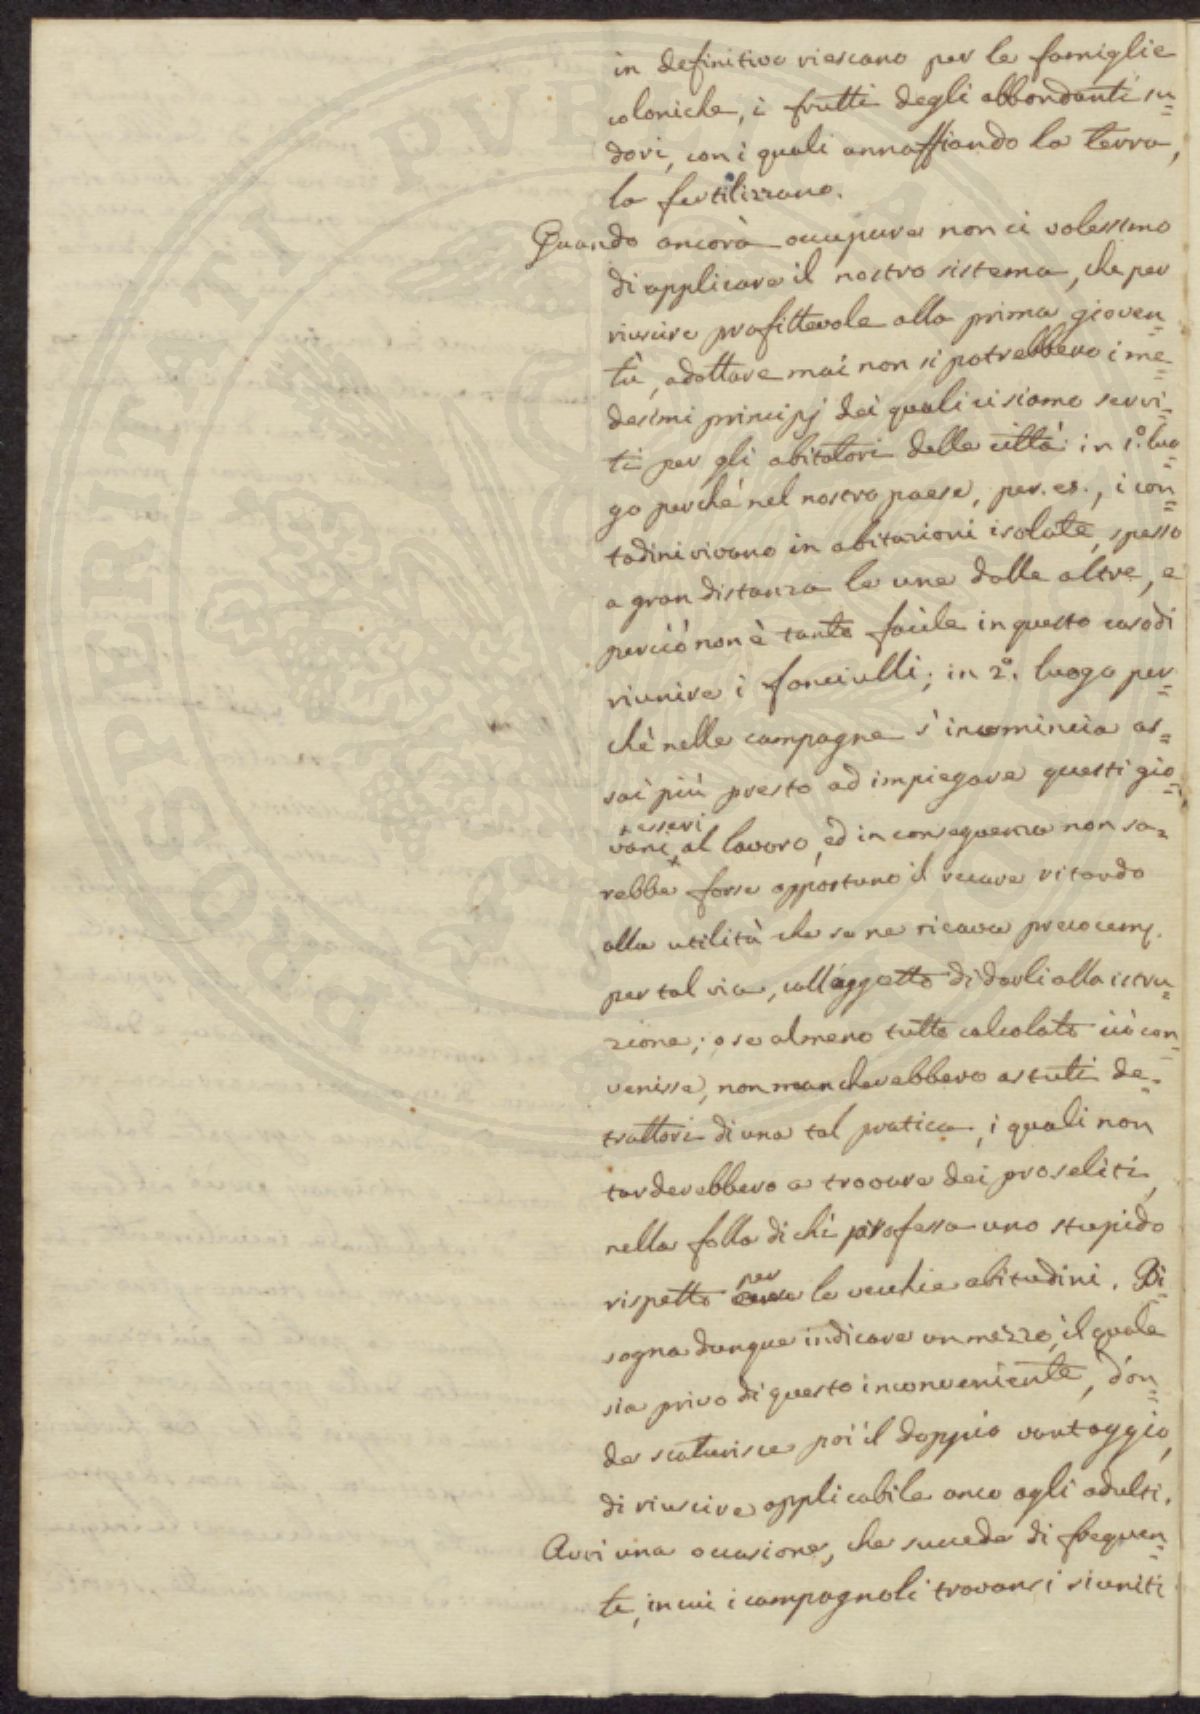 in definitivo riescano per le famiglie
coloniche, i frutti degli abbondanti su=
dori, con i quali annaffiando la terra,
la fertilizzano.
Quando ancorà occupare non ci volessimo
di applicare il nostro sistema, che per
riuscire profittevole alla prima gioven=
tù, adottare mai non si potrebbero i me=
desimi principj dei quali ci siamo servi=
ti per gli abitatori delle città: in 1.º luo=
go perchè nel nostro paese, per. es., i con=
tadini vivono in abitazioni isolate, spesso
a gran distanza le une dalle altre, e
perciò non è tanto facile in questo caso di
riunire i fanciulli; in 2.º luogo per=
chè nelle campagne s'incomincia as=
sai più presto ad impiegare questi gio=
vani esseri al lavoro, ed in conseguenza non sa=
rebbe forse opportuno il recare ritardo
alla utilità che se ne ricava precocem.
per tal via, coll'oggetto di darli alla istru=
zione; o se almeno tutto calcolato ciò con=
venisse, non mancherebbero astuti de=
trattori di una tal pratica, i quali non
tarderebbero a trovare dei proseliti,
nella folla di chi professa uno stupido
rispetto per le vecchie abitudini. Bi=
sogna dunque indicare un mezzo, il quale
sia privo di questo inconveniente, don=
de scaturisce poi il doppio vantaggio,
di riuscire applicabile anco agli adulti.
Avvi una occasione, che succede di frequen=
te, in cui i campagnoli trovansi riuniti
PROSPERITATI PVBLICAE